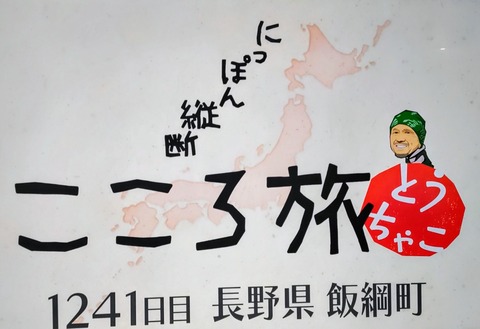 にっぽん縦断
こころ旅
とうちゃこ
1241日目 長野県 飯綱町